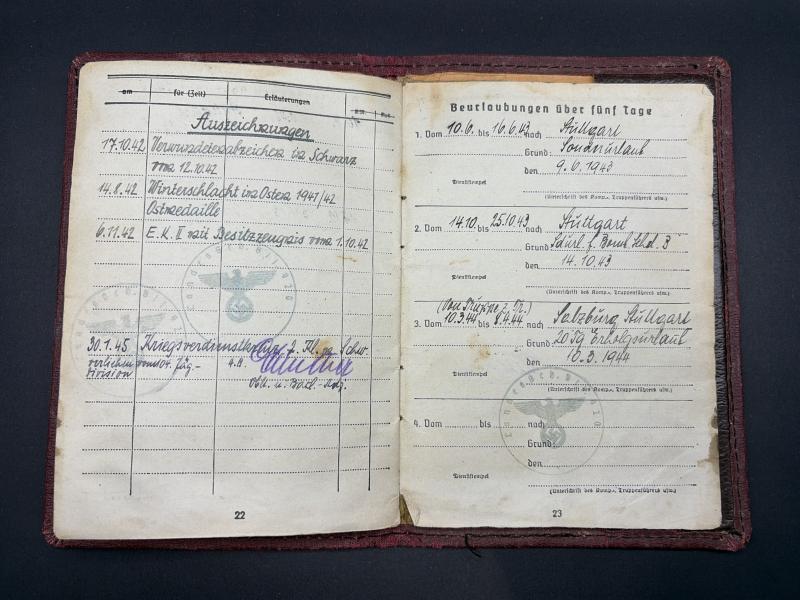 am für (Zeit) Erläuterungen
Auszeichnungen
17.10.42 Verwundetenabzeichen in Schwarz
vom 12.10.42
14.8.42 Winterschlacht im Osten 1941/42
Ostmedaille
6.11.42 E.K. II mit Besitzzeugnis vom 1.10.42
30.1.45 Kriegsverdienstkreuz 2. Kl. m. Schw.
verliehen vom 104. Jäg.-
Division
Oblt. u.
22
Beurlaubungen über fünf Tage
1. Vom 10.6. bis 16.6.43 nach Stuttgart
Grund: Sonderurlaub
den 9.6.1943
Dienststempel
(Unterschrift des Komp.-, Truppenführers usw.)
2. Vom 14.10. bis 25.10.43 nach Stuttgart
Grund:
den 14.10.43
Dienststempel
(Unterschrift des Komp.-, Truppenführers usw.)
3. Vom 10.3.44 bis 8.4.44 nach Salzburg Stuttgart
Grund: 20 Tg Erholgsurlaub
den 10.3.1944
Dienststempel
(Unterschrift des Komp.-, Truppenführers usw.)
4. Vom bis nach
Grund:
den
Dienststempel
(Unterschrift des Komp.-, Truppenführers usw.)
23